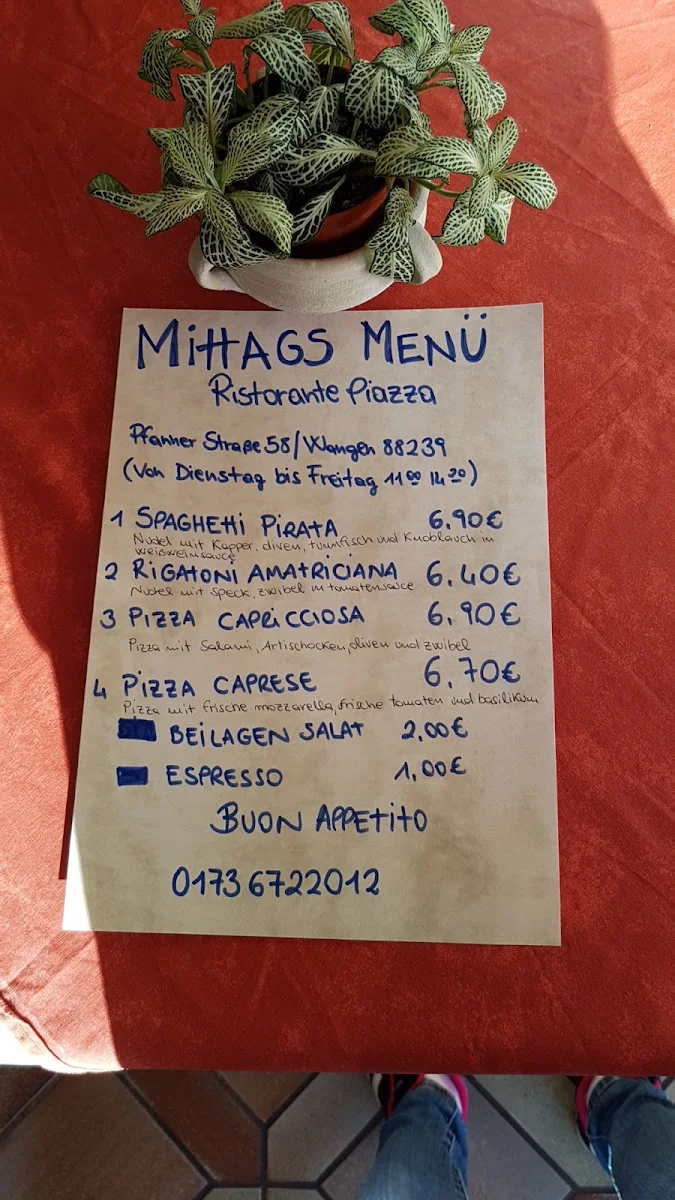 MittAGS MENÜ
Ristorante Piazza
Pfanner Straße 58/Wangen 88239
(Von Dienstag bis Freitag 11⁰⁰ 14³⁰)
1 SPAGHEttI PiRATA 6.90€
Nudel mit Kapper, oliven, tunnfisch und Knoblauch in
weißweinsauce
2 RIGATONI AMAtRICIANA 6.40€
Nudel mit Speck, zwibel in tomatensauce
3 PIZZA CAPRiCCIOSA 6.90€
Pizza mit Salami, Artischocken, oliven und zwibel
4 PiZZA CAPRESE 6,70€
Pizza mit frische mozzarella, frische tomaten und basilikum
BEiLAGEN SALAt 2,00€
ESPRESSO 1,00€
BUON APPEtitO
0173 6722012